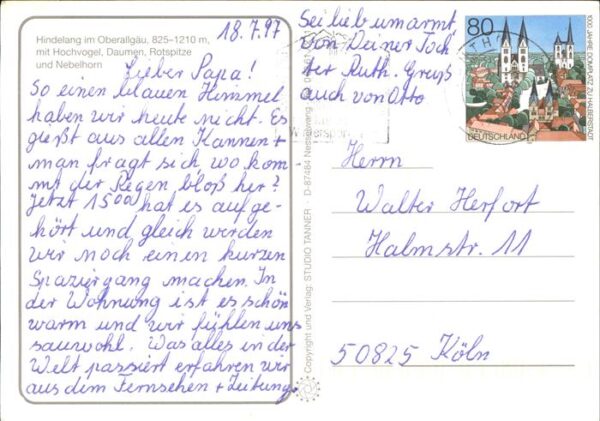 Hindelang im Oberallgäu, 825–1210 m,
mit Hochvogel, Daumen, Rotspitze
und Nebelhorn
18.7.97
Lieber Papa!
So einen blauen Himmel
haben wir heute nicht. Es
gießt aus allen Kannen +
man fragt sich, wo kom
mt der Regen bloß her?
Jetzt 15⁰⁰ hat es aufge-
hört und gleich werden
wir noch einen kurzen
Spaziergang machen. In
der Wohnung ist es schön
warm und wir fühlen uns
sauwohl. Was alles in der
Welt passiert erfahren wir
aus dem Fernsehen + Zeitung.
Sei lieb umarmt
von Deiner Toch
ter Ruth. Gruß
auch von Otto
Copyright und Verlag: STUDIO TANNER · D-87484 Nesselwang
80
DEUTSCHLAND
1000 JAHRE DOMPLATZ ZU HALBERSTADT
Herrn
Walter Herfort
Halmstr. 11
50825 Köln